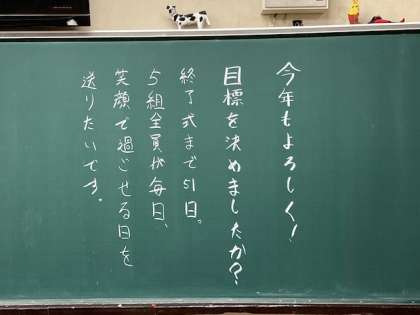 今年もよろしく!
目標を決めましたか?
終了式まで51日。
5組全員が毎日、
笑顔で過ごせる日を
送りたいです。